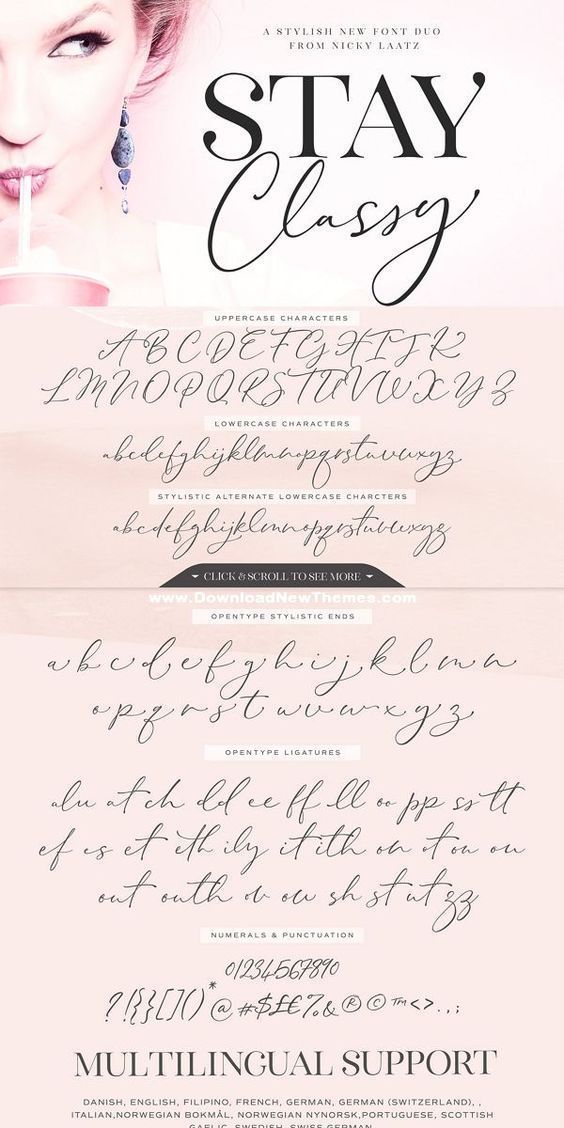 A STYLISH NEW FONT DUO
FROM NICKY LAATZ
STAY
Classy
UPPERCASE CHARACTERS
A B C D E F G H I J K
L M N O P Q R S T U V W X Y Z
LOWERCASE CHARACTERS
abcdefghijklmnopqrstuvwxyz
STYLISTIC ALTERNATE LOWERCASE CHARCTERS
abcdefghijklmnopqrstuvwxyz
CLICK & SCROLL TO SEE MORE
www.DownloadNewThemes.com
OPENTYPE STYLISTIC ENDS
a b c d e f g h i j k l m n
o p q r s t u v w x y z
OPENTYPE LIGATURES
alu at ch dd ee ff ll oo pp ss tt
ef es et eth ily it ith on ot ou ow
out outh ov ow sh st ut zz
NUMERALS & PUNCTUATION
0123456789O
?!{}[]()*@#$£€%&®©™<>.,:;
MULTILINGUAL SUPPORT
DANISH, ENGLISH, FILIPINO, FRENCH, GERMAN, GERMAN (SWITZERLAND), ,
ITALIAN,NORWEGIAN BOKMÅL, NORWEGIAN NYNORSK,PORTUGUESE, SCOTTISH
GAELIC, SWEDISH, SWISS GERMAN